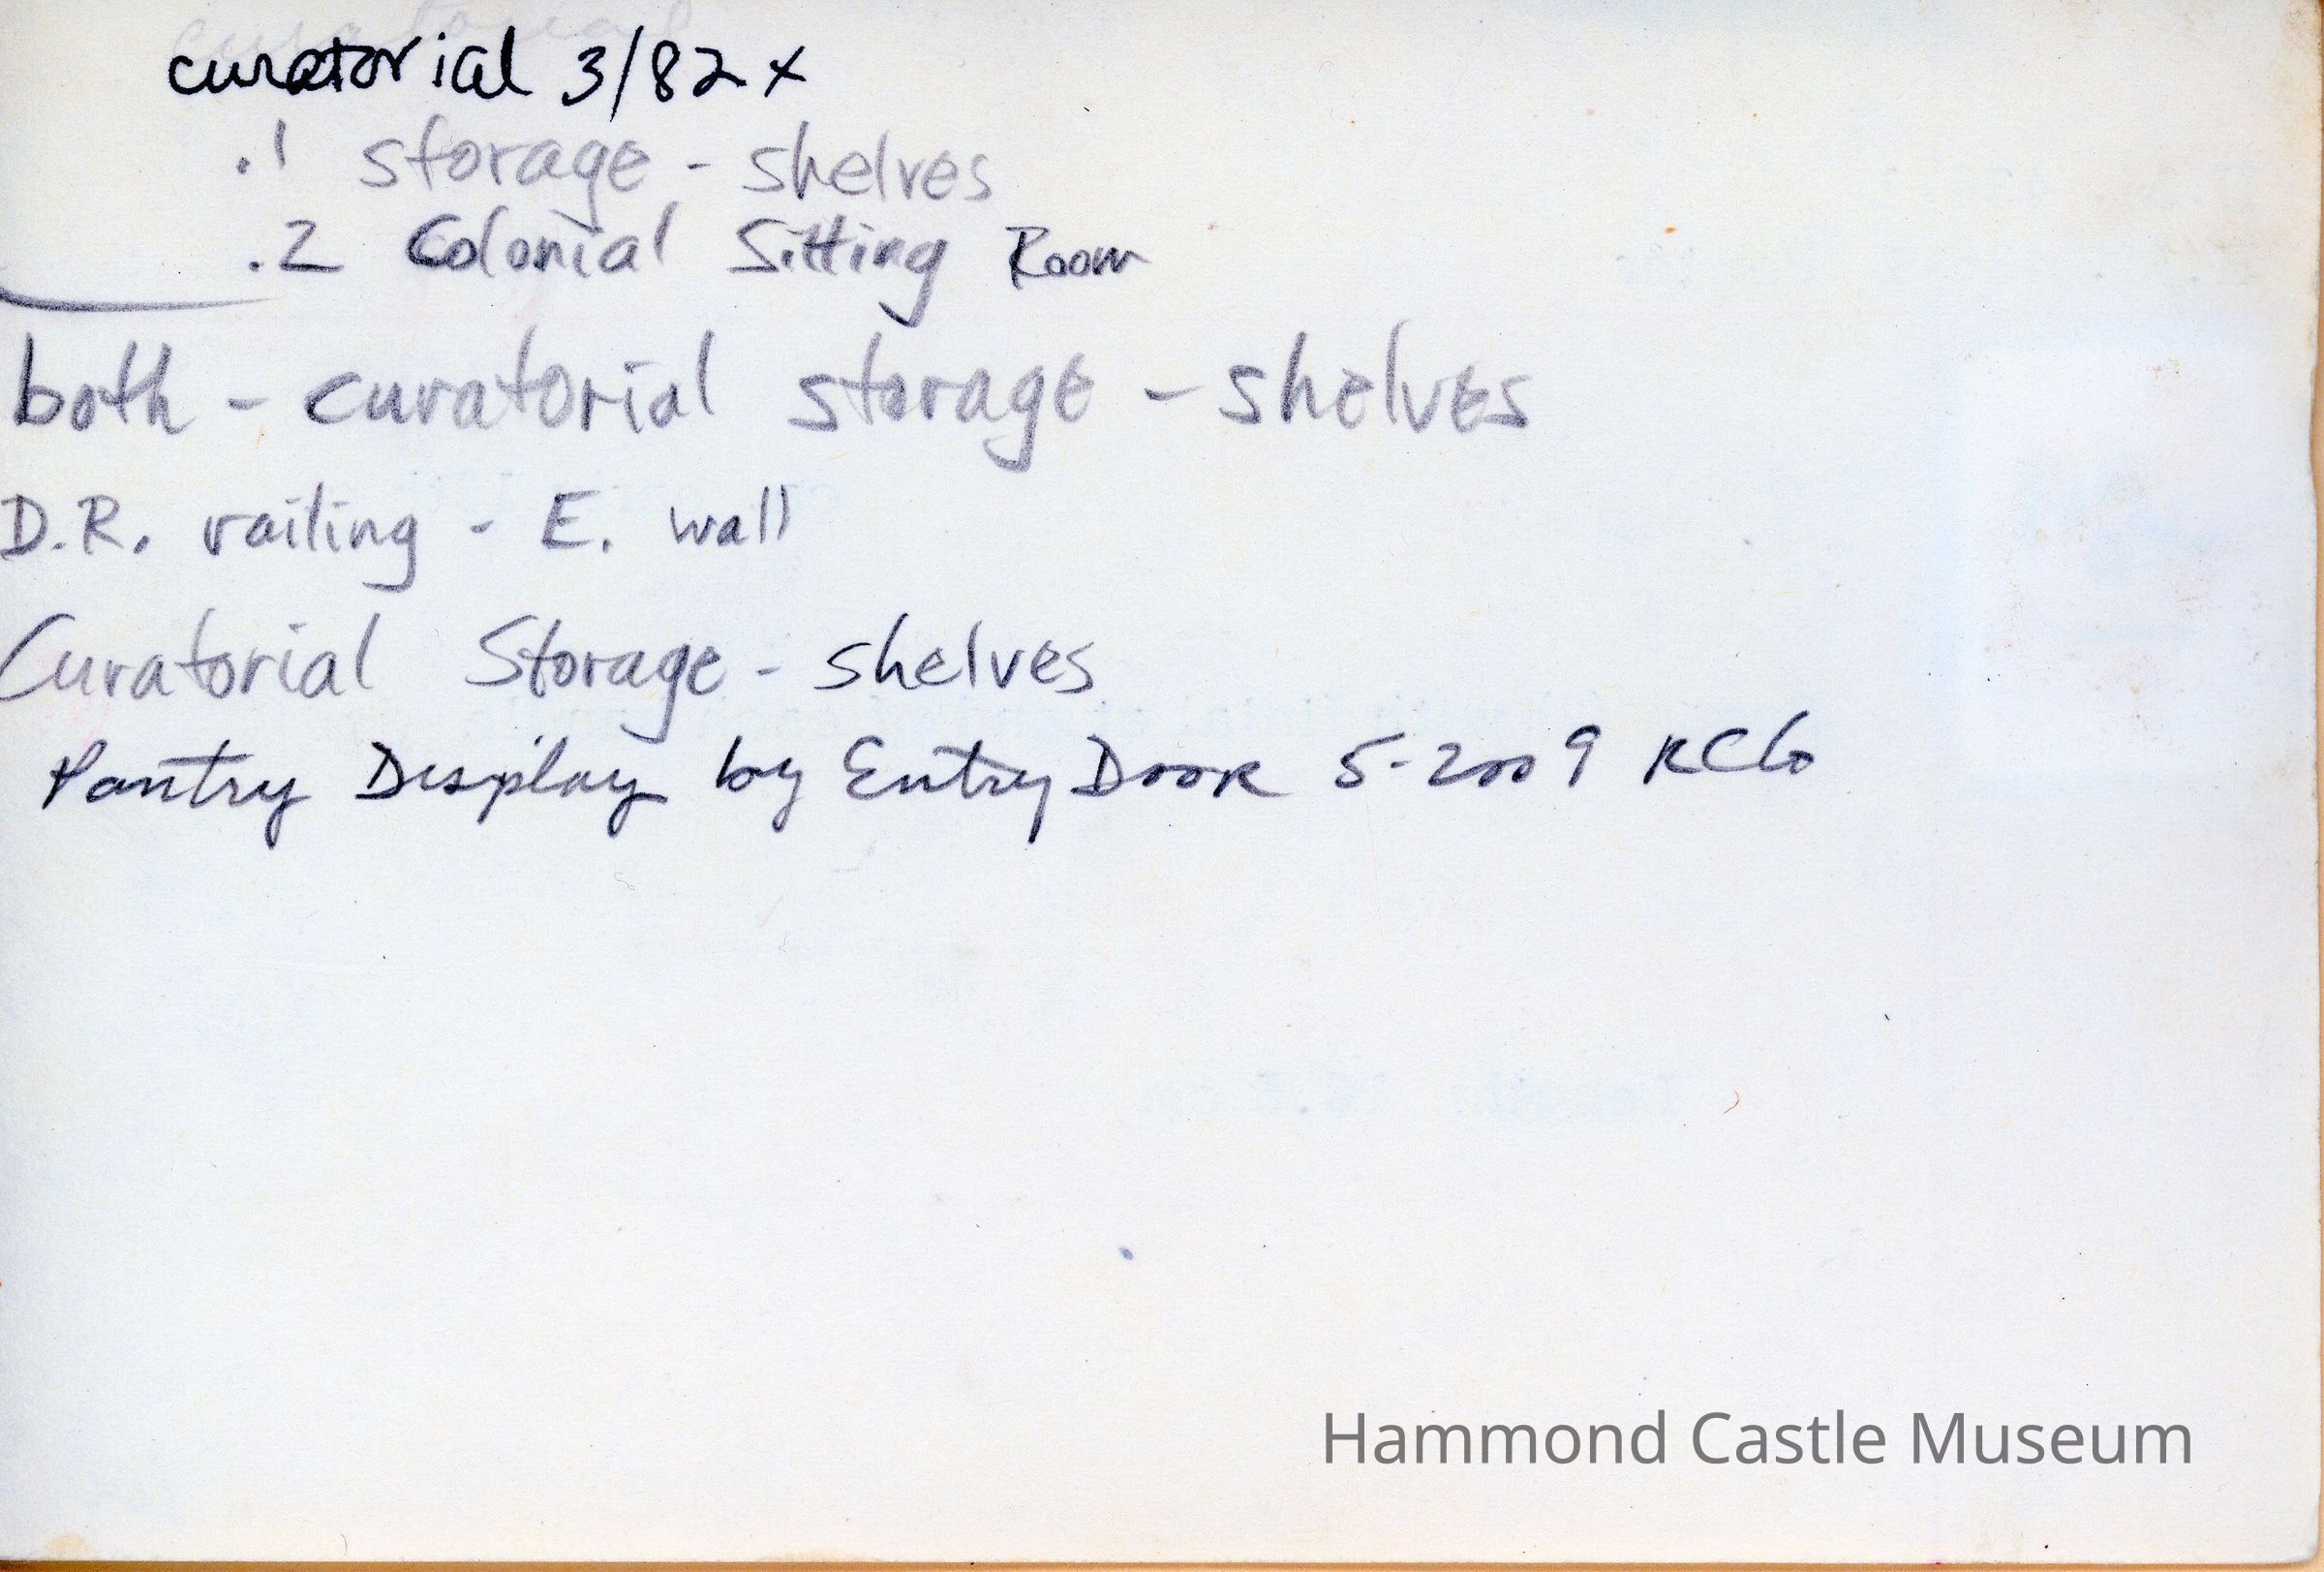 curatorial 3/82 x
.1 storage - shelves
.2 Colonial Sitting Room
both - curatorial storage - shelves
D.R. railing - E. wall
Curatorial Storage - shelves
Pantry Display by Entry Door 5-2009 RCG
Hammond Castle Museum